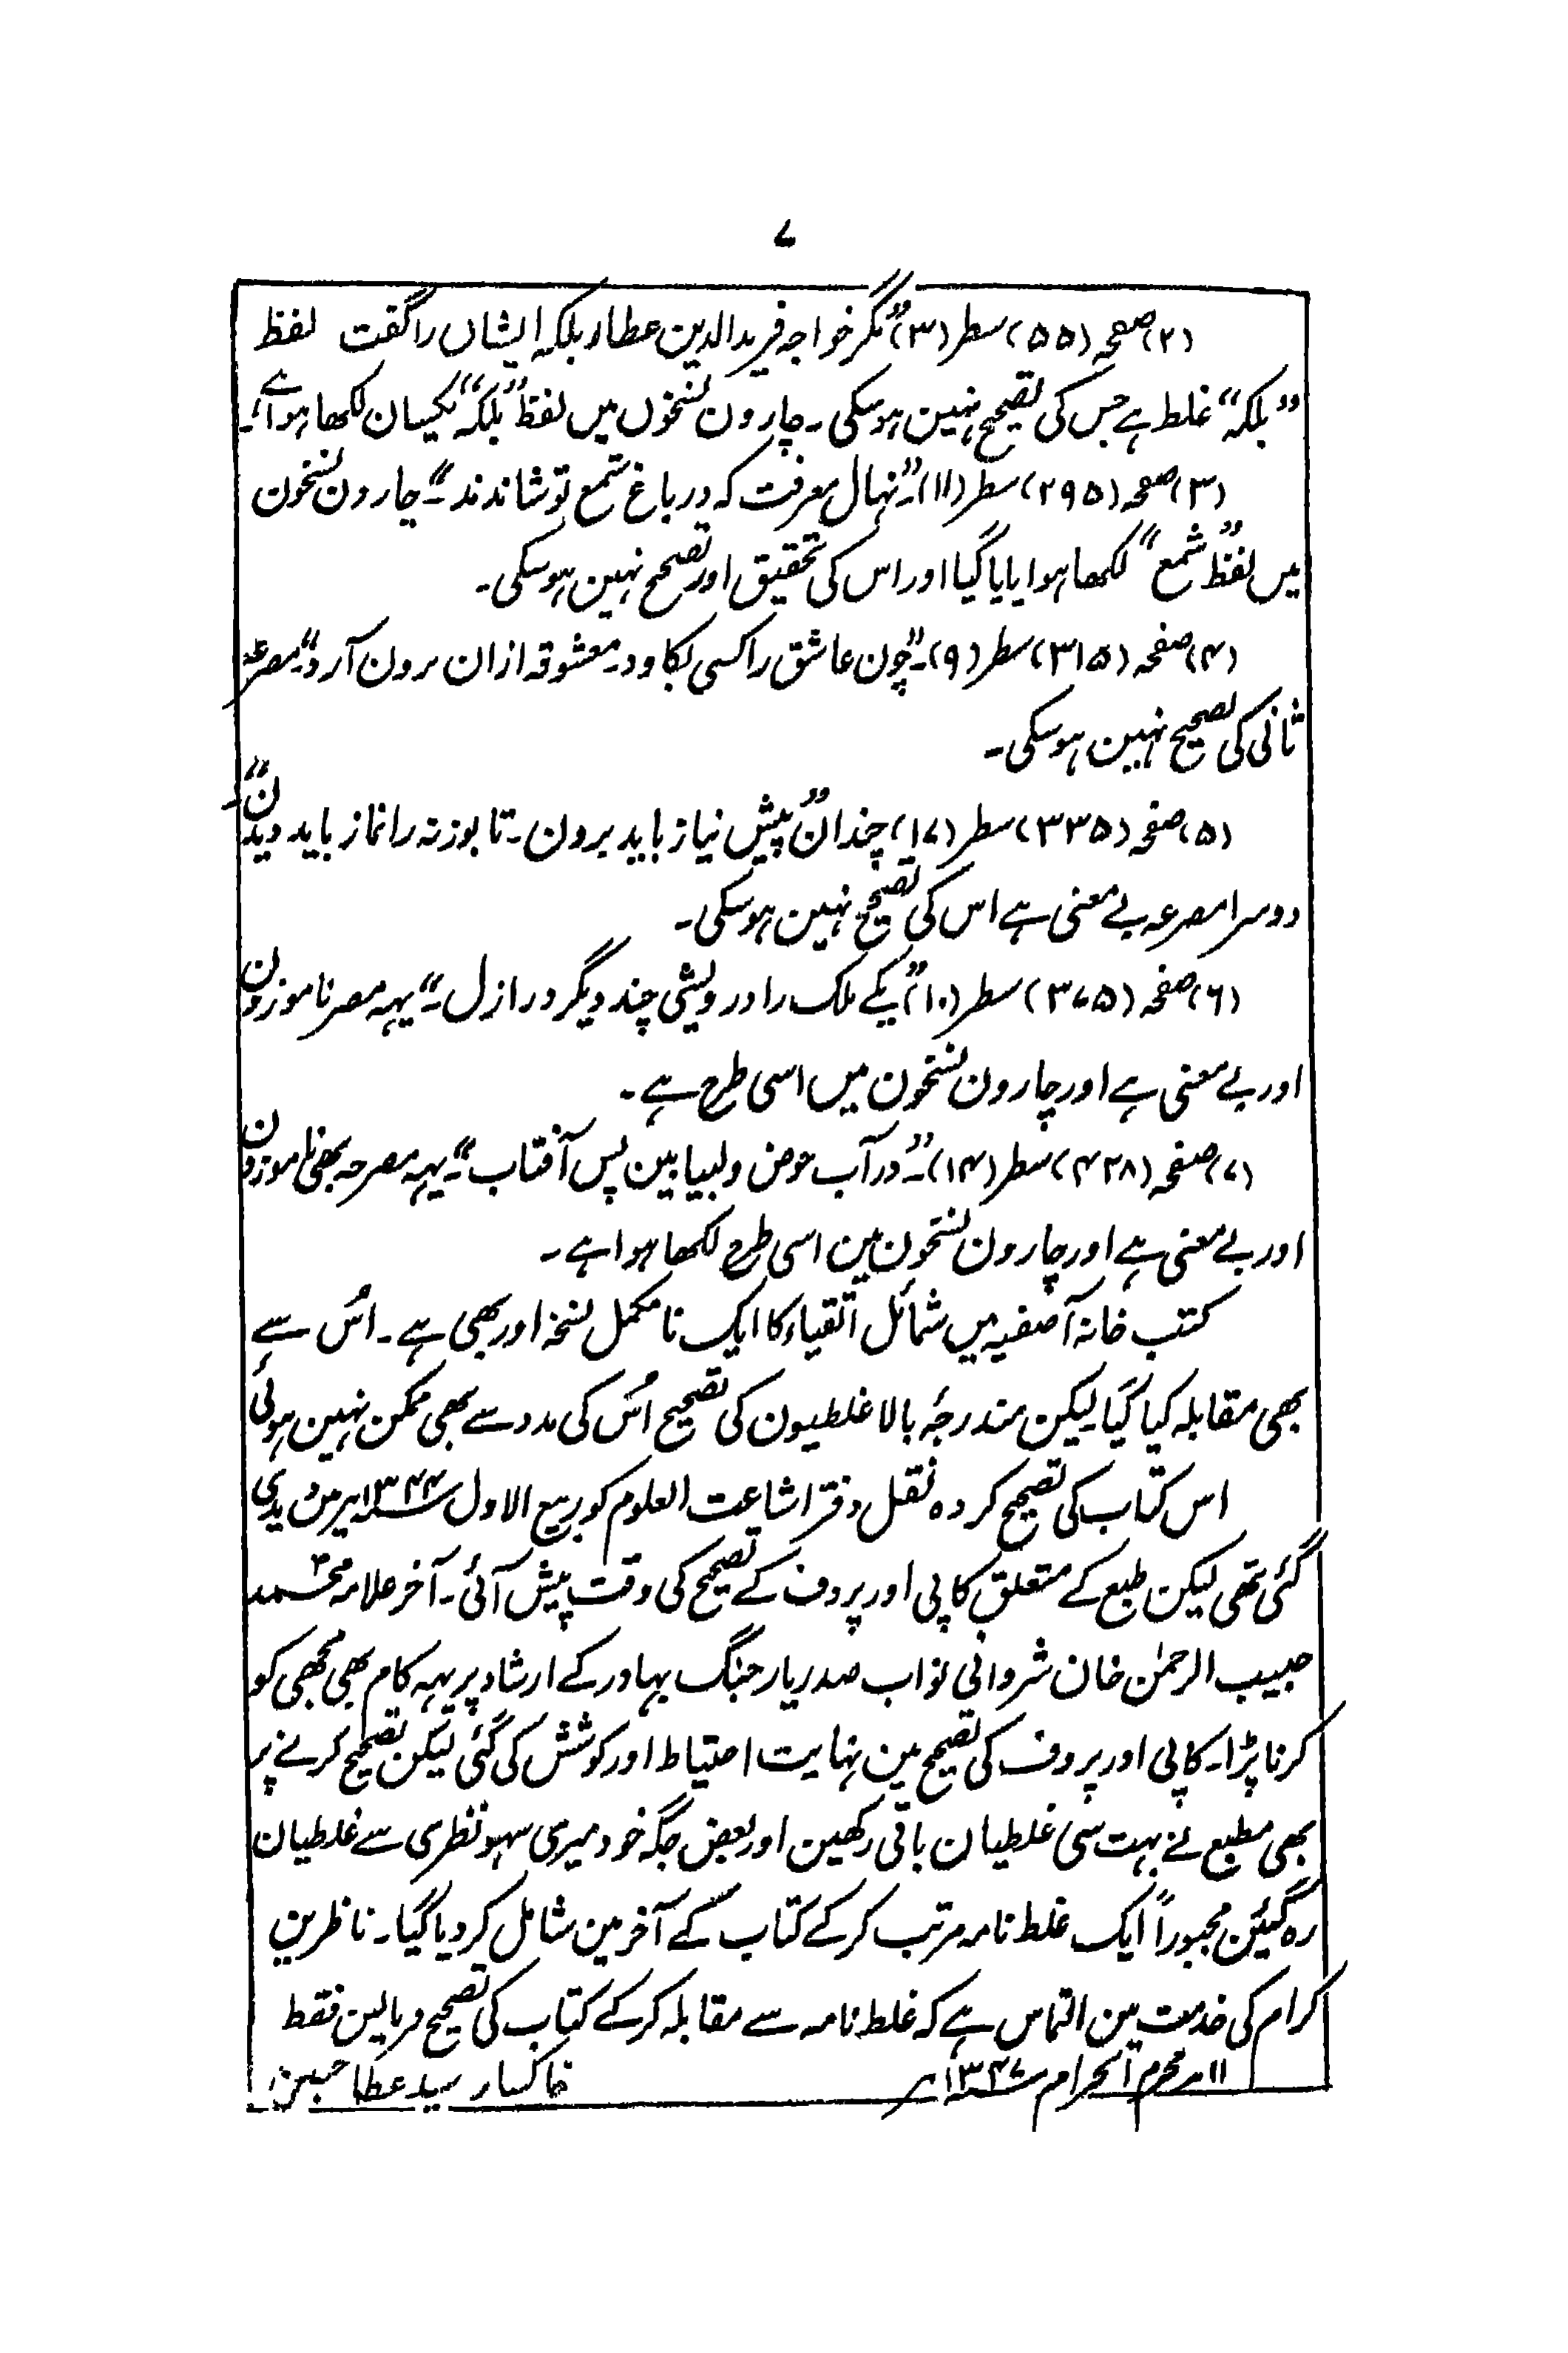 ۷
(۲) صفحہ (۵۵) سطر (۳) ”مگر خواجہ فرید الدین عطار بلکہ ایشاں را گفت لفظ
”بلکہ“ غلط ہے جس کی تصحیح نہین ہوسکی ۔ چارون نسخوں میں لفظ ”بلکہ“ یکسان لکھا ہوا ہے۔
(۳) صفحہ (۲۹۵) سطر (۱۱)۔ ”نہال معرفت کہ در باغ شمع تو نشاندند“۔ چارون نسخون
میں لفظ ”شمع“ لکھا ہوا پایا گیا اور اس کی تحقیق اور تصحیح نہین ہوسکی۔
(۴) صفحہ (۳۱۵) سطر (۹)۔ ”چون عاشق را کسی بکاود ۔ معشوقہ ازان برون آرد“۔ مصرعہ
ثانی کی تصحیح نہین ہوسکی۔
(۵) صفحہ (۳۳۵) سطر (۱۷) ”چندان پیش نیاز باید برون ۔ تا بوزنہ را نماز باید دیدن“
دوسرا مصرعہ بے معنی ہے اس کی تصحیح نہین ہوسکی۔
(۶) صفحہ (۳۷۵) سطر (۱۰) ”یکے ملک را درویشی چند دیگر در ازل“۔ یہہ مصر ناموزون
اور بے معنی ہے اور چارون نسخون میں اسی طرح ہے ۔
(۷) صفحہ (۴۲۸) سطر (۱۴)۔ ”در آب حوض ولبیا بین پس آفتاب“۔ یہہ مصرحہ بھی ناموزون
اور بے معنی ہے اور چارون نسخون مین اسی طرح لکھا ہوا ہے ۔
کتب خانہ آصفیہ میں شمائل اتقیاء کا ایک نا مکمل نسخہ اور بھی ہے ۔ اُس سے
بھی مقابلہ کیا گیا۔ لیکن مندرجۂ بالا غلطیون کی تصحیح اُس کی مدد سے بھی ممکن نہین ہوئی
اس کتاب کی تصحیح کردہ نقل دفتر اشاعت العلوم کو ربیع الاول ۱۳۴۴؁ہجر مین دیدی
گئی تھی لیکن طبع کے متعلق کاپی اور پروف کے تصحیح کی دقت پیش آئی۔ آخر علامہ محمد
حبیب الرحمٰن خان شروانی نواب صدر یار جنگ بہادر کے ارشاد پر یہہ کام بھی مجھی کو
کرنا پڑا۔ کاپی اور پروف کی تصحیح مین نہایت احتیاط اور کوشش کی گئی لیکن تصحیح کرنے پر
بھی مطبع نے بہت سی غلطیان باقی رکھین اور بعض جگہ خود میری سہو نظری سے غلطیان
رہ گیئن مجبوراً ایک غلط نامہ مرتب کرکے کتاب کے آخر مین شامل کر دیا گیا۔ ناظرین
کرام کی خدمت مین التماس ہے کہ غلط نامہ سے مقابلہ کرکے کتاب کی تصحیح فرمالین فقط
۱۱ محرم الحرام ۱۳۴۷؁ خاکسار سید عطا حسین